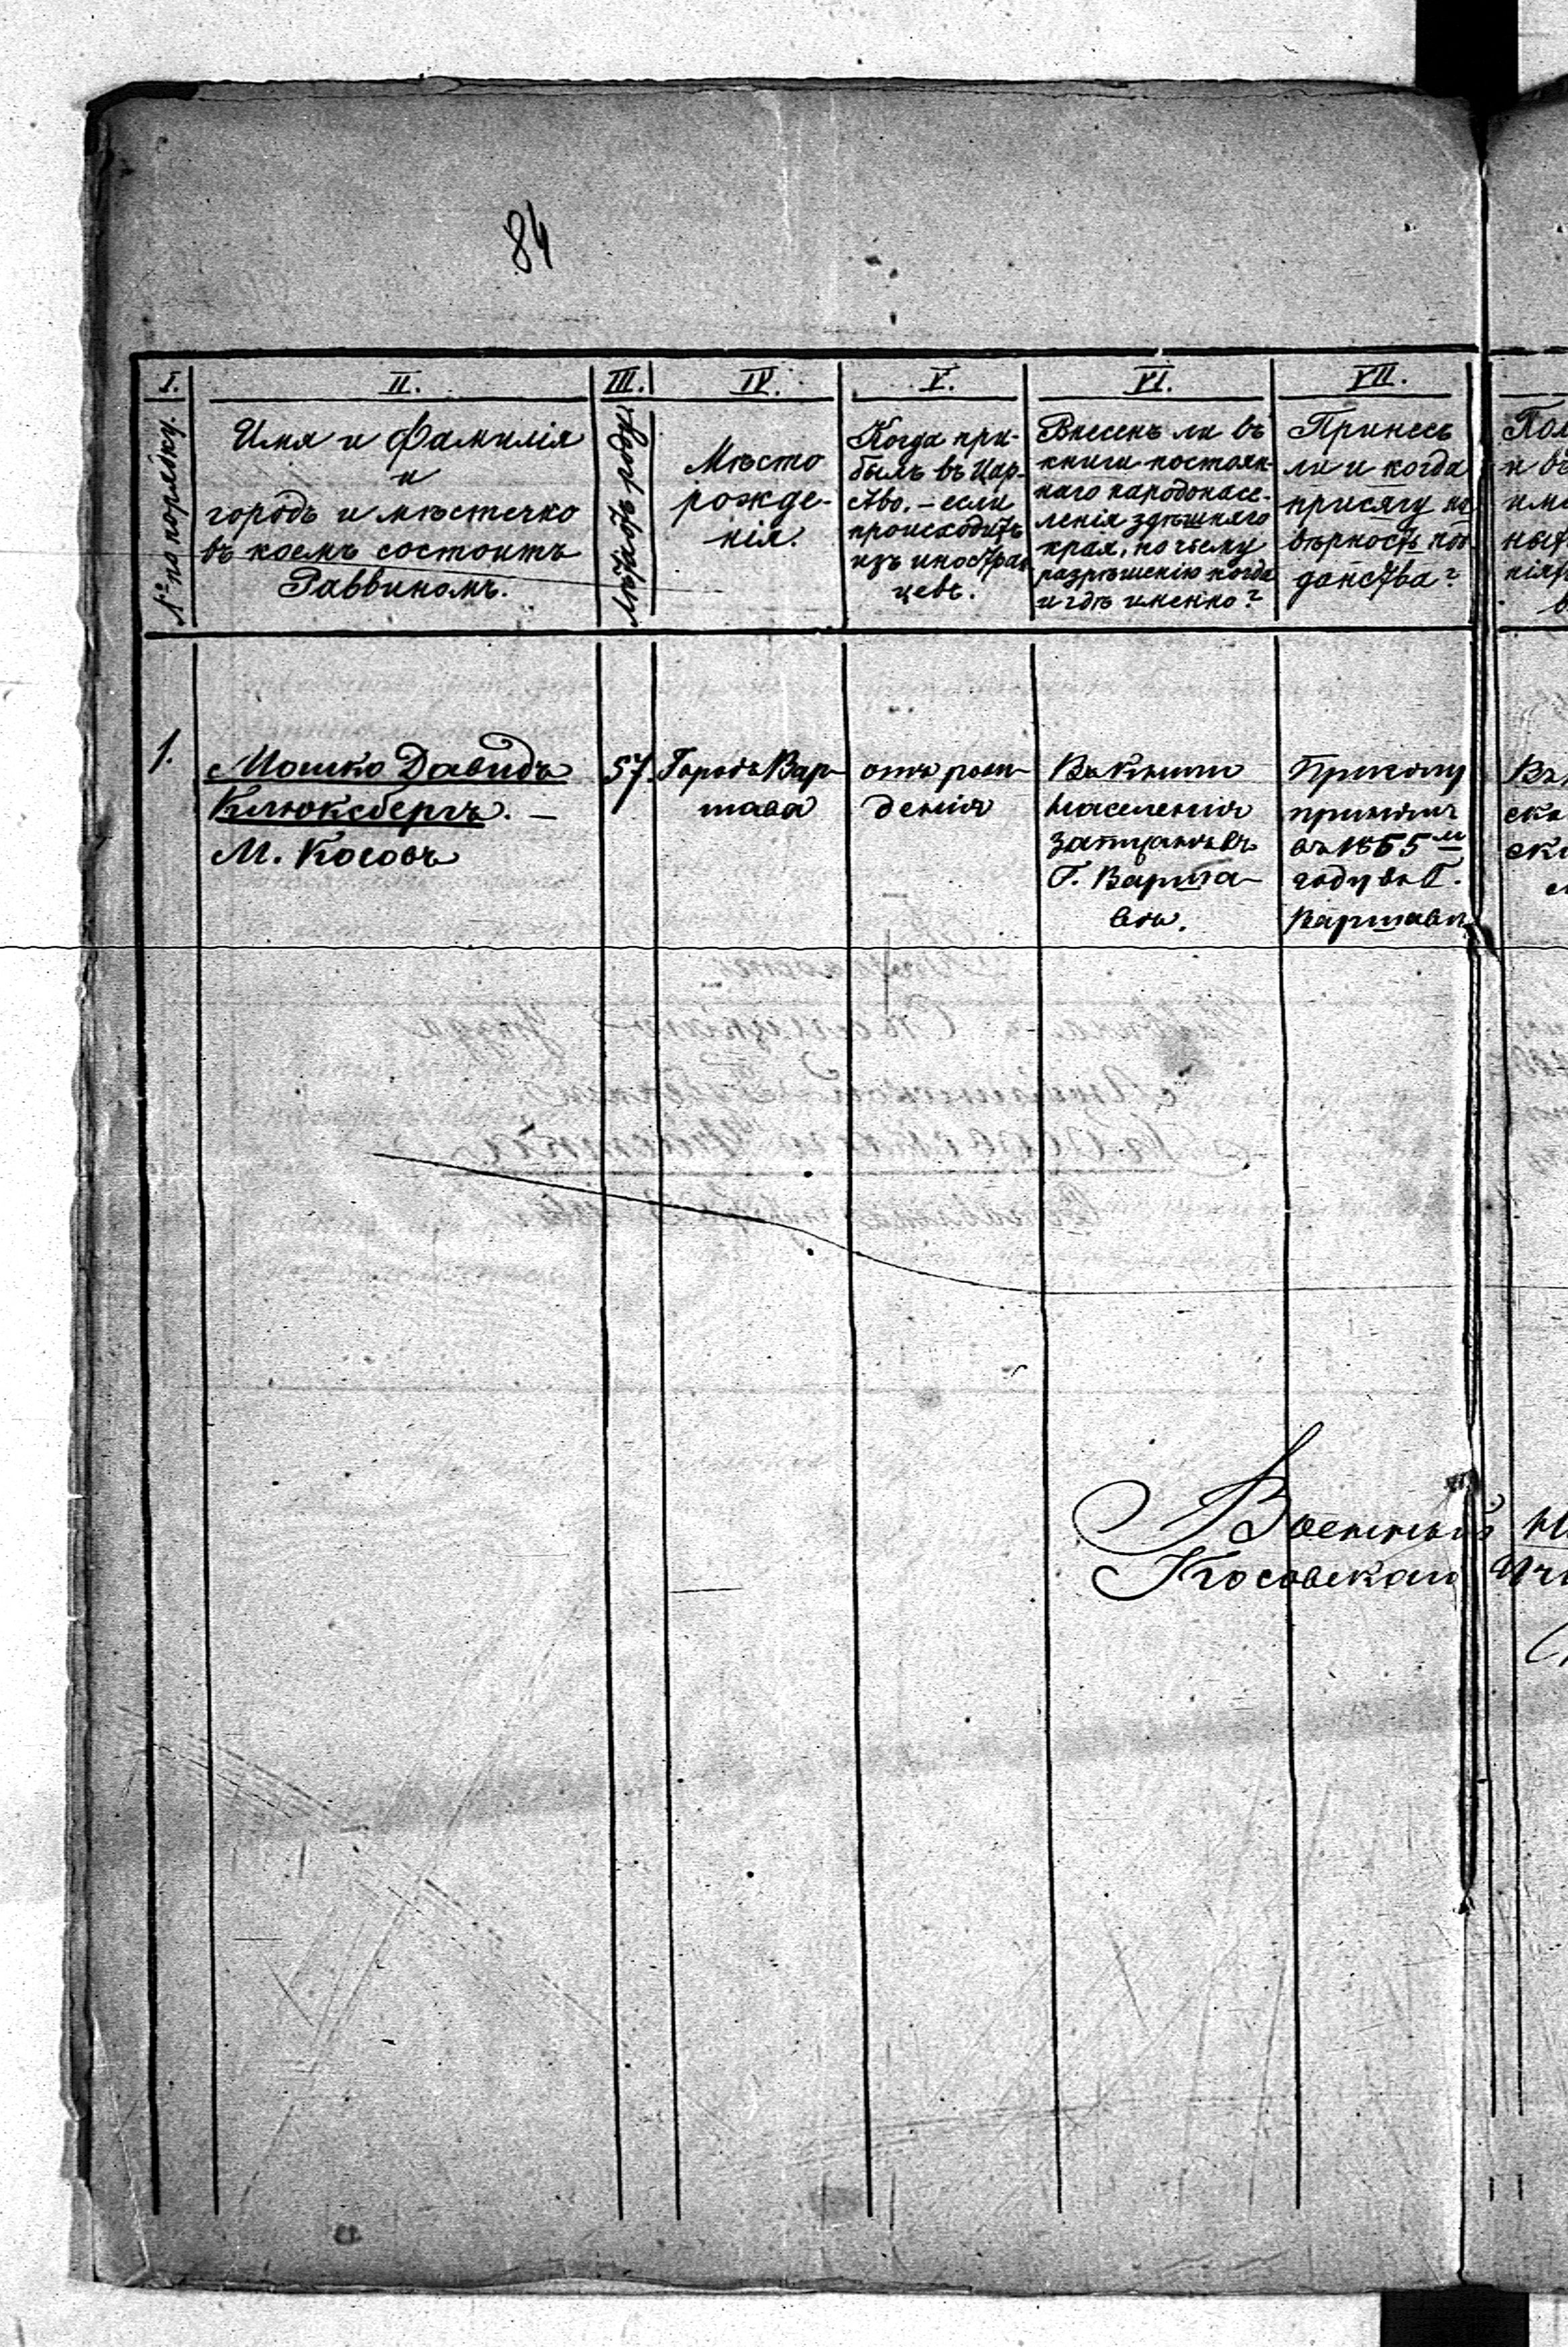 84
I.
№ по порядку.
II.
Имя и Фамилія
и
городъ и мѣстечко
въ коемъ состоитъ
Раввиномъ.
III.
Лѣта отъ роду
IV.
Мѣсто
рожде-
нія.
V.
Когда при-
былъ въ Цар-
ство, – если
происходитъ
изъ иностран
цевъ.
VI.
Внесенъ ли въ
книги постоян-
наго народонасе-
ленія здѣшняго
края, по чьему
разрѣшенію когда
и гдѣ именно?
VII.
Принесъ
ли и когда
присягу на
вѣрность под
данства?
1.
Мошко Давидъ
Клюксбергъ. –
М. Косовъ
57.
Городъ Вар-
шава
отъ рож-
денія
Въ книги
населенія
записанъ въ
Г. Варша-
вѣ.
Присягу
принялъ
въ 1865 м
году въ Г.
Варшавѣ
Военный
Косовскаго